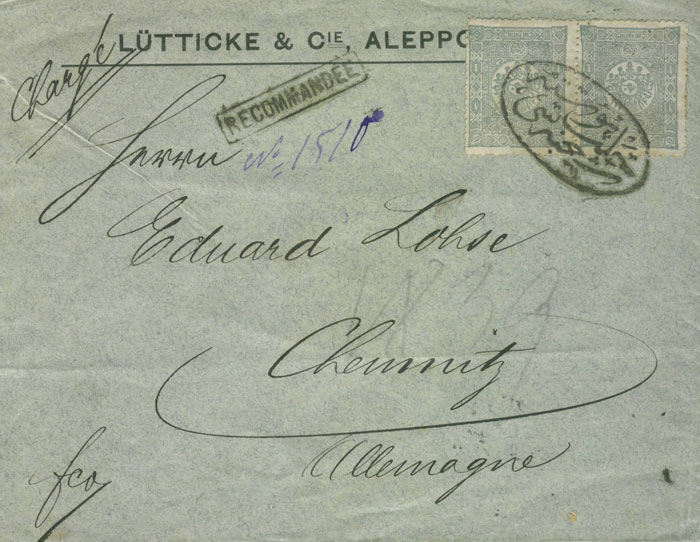 LÜTTICKE & CIE, ALEPPO
Chargé
RECOMMANDÉE
Herrn
No 1510
Eduard Lohse
Chemnitz
Allemagne
fco